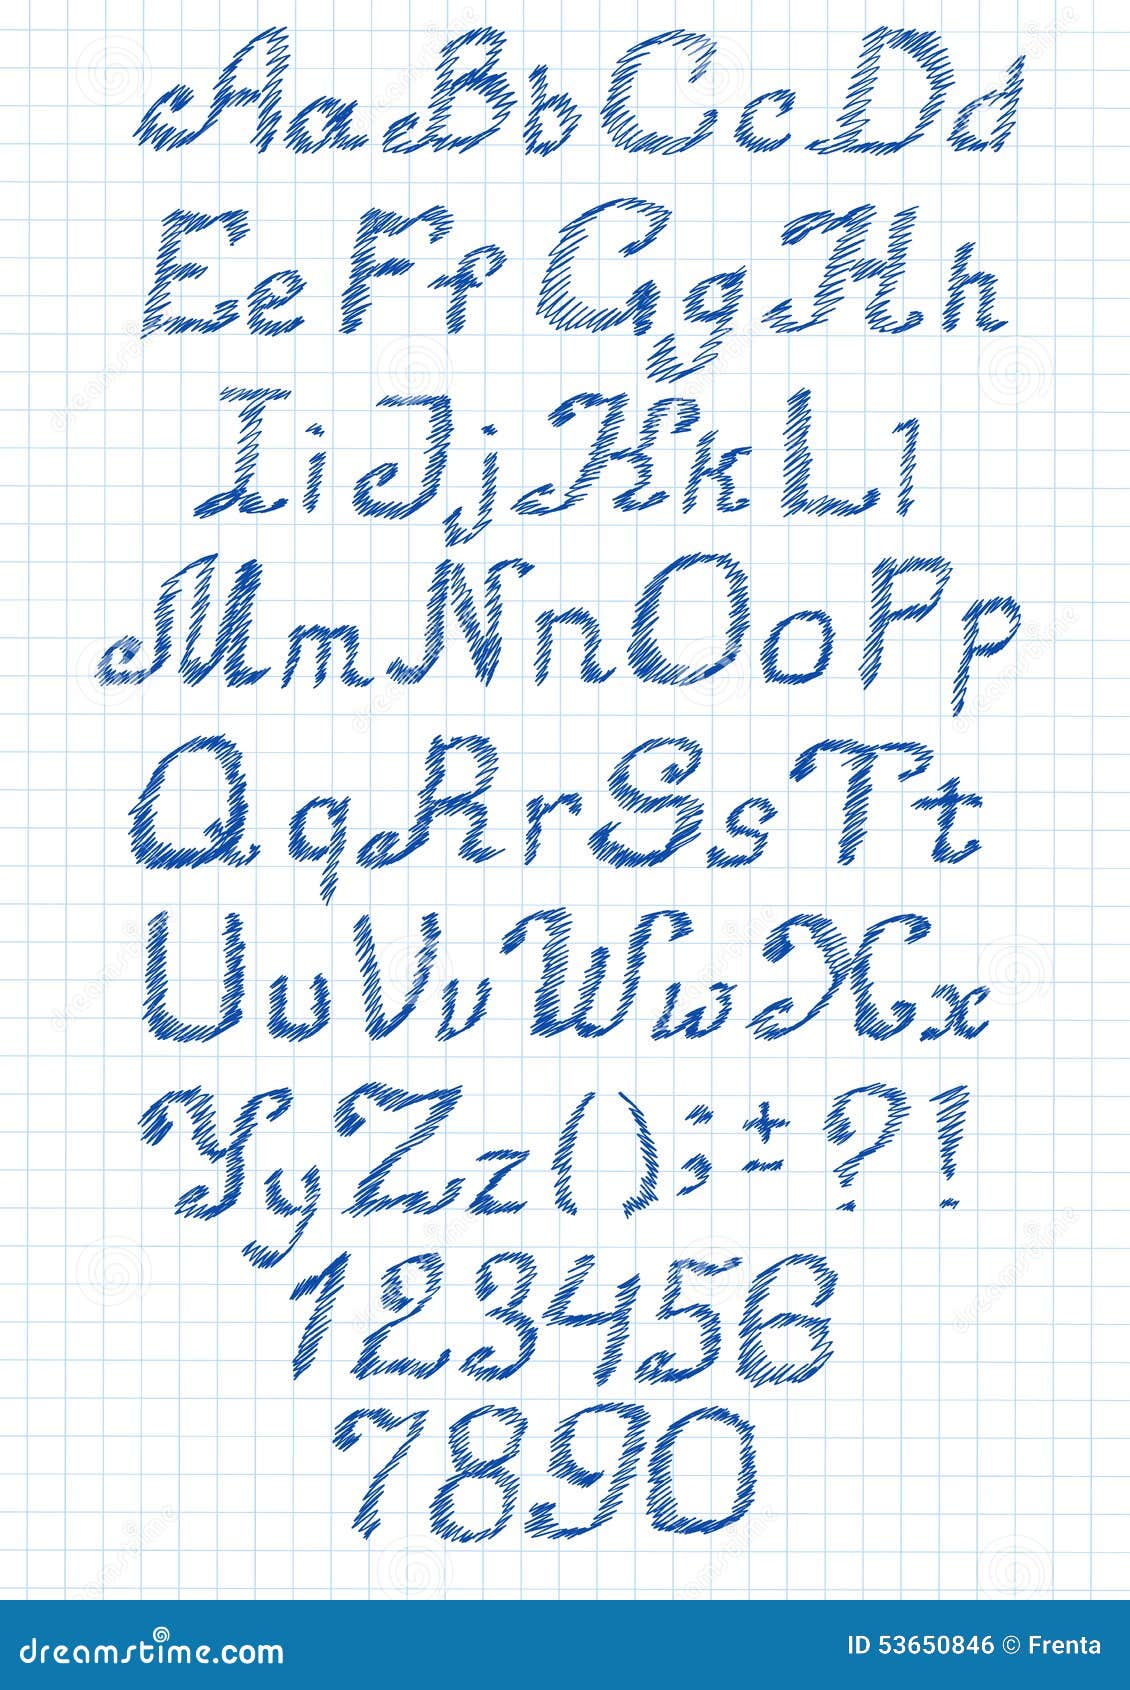 AaBbCcDd
EeFfGgHh
IiJjKkLl
MmNnOoPp
QqRrSsTt
UuVvWwXx
YyZz();±?!
123456
7890
dreamstime.com
ID 53650846 © Frenta